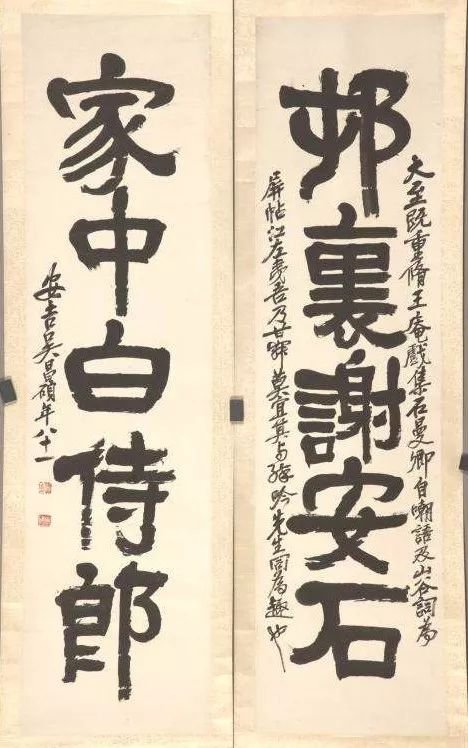 邨裏謝安石
大至既重脩王庵戲集石曼卿自嘲語及山谷詞為
屏帖江左夷吾乃甘 莫宜其与 吟先生同為趣也
家中白侍郎
安吉吳昌碩年八十一